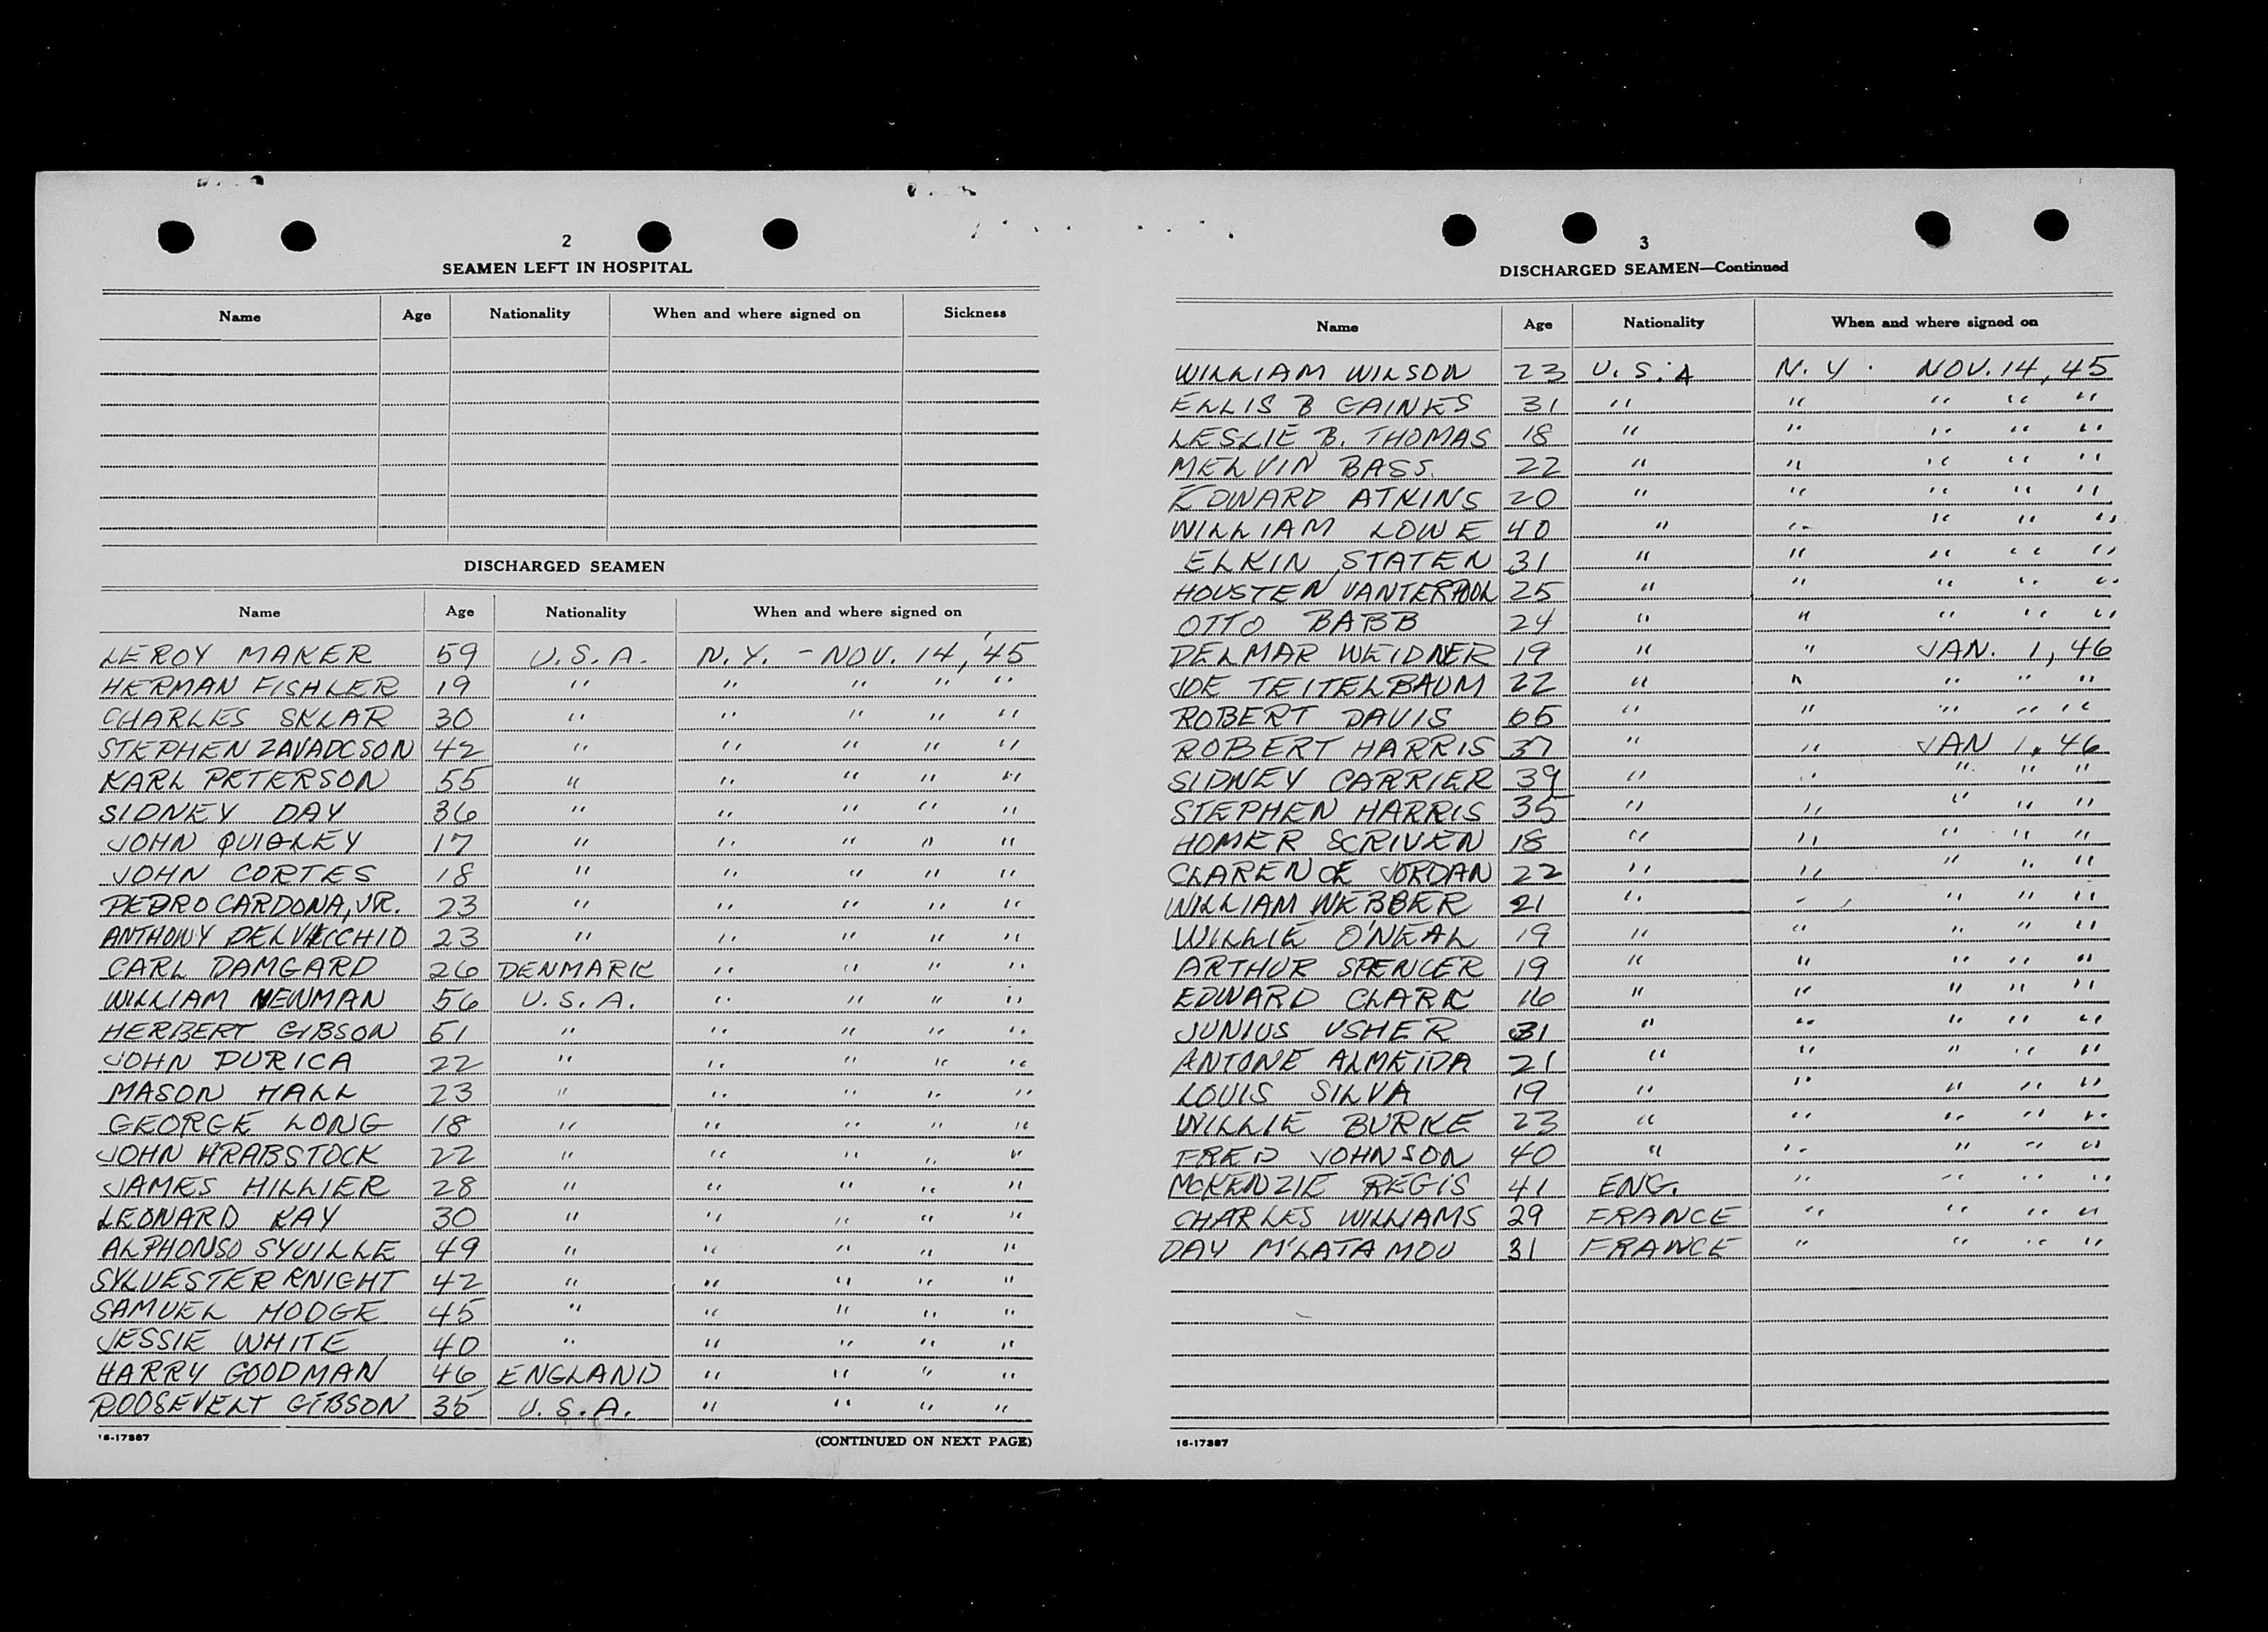 2
SEAMEN LEFT IN HOSPITAL
Name Age Nationality When and where signed on Sickness
DISCHARGED SEAMEN
Name Age Nationality When and where signed on
LEROY MAKER 59 U.S.A. N.Y. - NOV. 14, '45
HERMAN FISHLER 19 " " " " "
CHARLES SKLAR 30 " " " " "
STEPHEN ZAVADCSON 42 " " " " "
KARL PETERSON 55 " " " " "
SIDNEY DAY 36 " " " " "
JOHN QUIGLEY 17 " " " " "
JOHN CORTES 18 " " " " "
PEDRO CARDONA, JR. 23 " " " " "
ANTHONY DELVECCHIO 23 " " " " "
CARL DAMGARD 26 DENMARK " " " "
WILLIAM NEWMAN 56 U.S.A. " " " "
HERBERT GIBSON 51 " " " " "
JOHN DURICA 22 " " " " "
MASON HALL 23 " " " " "
GEORGE LONG 18 " " " " "
JOHN HRABSTOCK 22 " " " " "
JAMES HILLIER 28 " " " " "
LEONARD KAY 30 " " " " "
ALPHONSO SYVILLE 49 " " " " "
SYLVESTER KNIGHT 42 " " " " "
SAMUEL HODGE 45 " " " " "
JESSIE WHITE 40 " " " " "
HARRY GOODMAN 46 ENGLAND " " " "
ROOSEVELT GIBSON 35 U.S.A. " " " "
16-17387 (CONTINUED ON NEXT PAGE)
3
DISCHARGED SEAMEN—Continued
Name Age Nationality When and where signed on
WILLIAM WILSON 23 U.S.A N.Y. NOV. 14, 45
ELLIS B GAINES 31 " " " " "
LESLIE B. THOMAS 18 " " " " "
MELVIN BASS. 22 " " " " "
EDWARD ATKINS 20 " " " " "
WILLIAM LOWE 40 " " " " "
ELKIN STATEN 31 " " " " "
HOUSTEN VANTERPOOL 25 " " " " "
OTTO BABB 24 " " " " "
DELMAR WEIDNER 19 " " JAN. 1, 46
JOE TEITELBAUM 22 " " " " "
ROBERT DAVIS 65 " " " " "
ROBERT HARRIS 37 " " JAN 1, 46
SIDNEY CARRIER 39 " " " " "
STEPHEN HARRIS 35 " " " " "
HOMER SCRIVEN 18 " " " " "
CLARENCE JORDAN 22 " " " " "
WILLIAM WEBBER 21 " " " " "
WILLIE O'NEAL 19 " " " " "
ARTHUR SPENCER 19 " " " " "
EDWARD CLARK 16 " " " " "
JUNIUS USHER 31 " " " " "
ANTONE ALMEIDA 21 " " " " "
LOUIS SILVA 19 " " " " "
WILLIE BURKE 23 " " " " "
FRED JOHNSON 40 " " " " "
MCKENZIE REGIS 41 ENG. " " " "
CHARLES WILLIAMS 29 FRANCE " " " "
DAY M'LATAMOU 31 FRANCE " " " "
16-17387